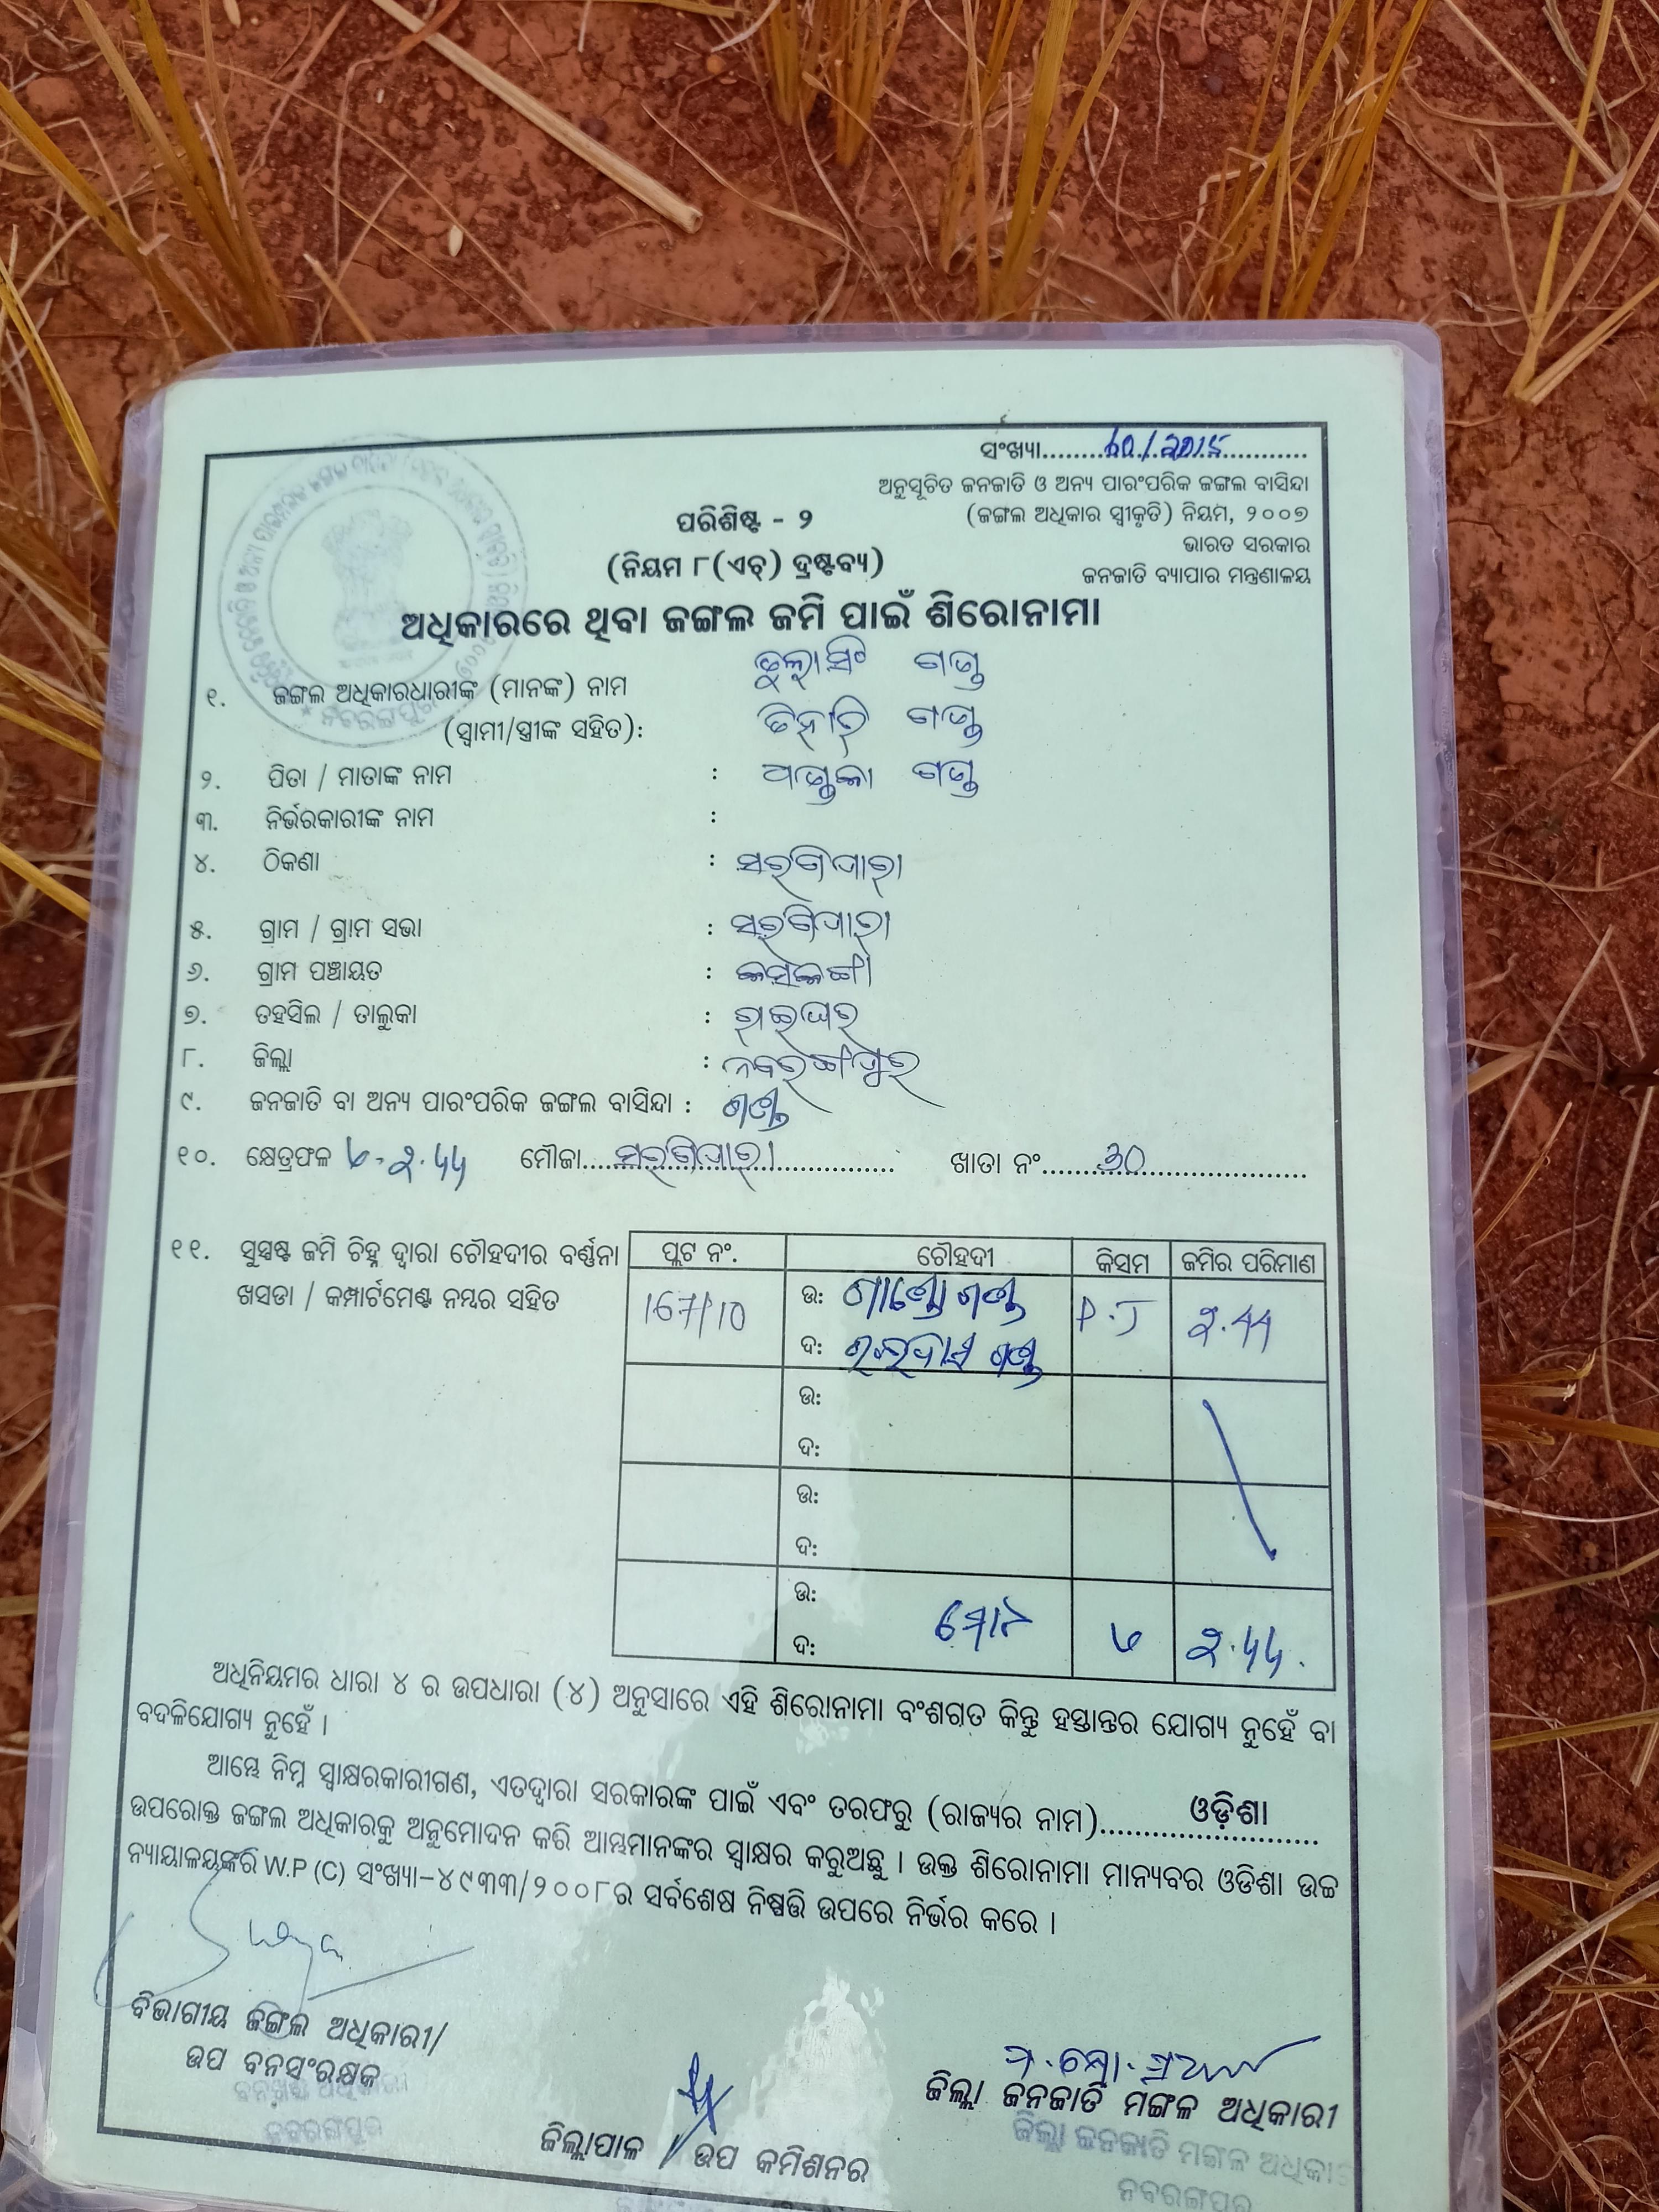 ସଂଖ୍ୟା..........60/2015............
ଅନୁସୂଚିତ ଜନଜାତି ଓ ଅନ୍ୟ ପାରଂପରିକ ଜଙ୍ଗଲ ବାସିନ୍ଦା
(ଜଙ୍ଗଲ ଅଧିକାର ସ୍ୱୀକୃତି) ନିୟମ, ୨୦୦୭
ଭାରତ ସରକାର
ଜନଜାତି ବ୍ୟାପାର ମନ୍ତ୍ରଣାଳୟ
ପରିଶିଷ୍ଟ - ୨
(ନିୟମ ୮(ଏଚ୍) ଦ୍ରଷ୍ଟବ୍ୟ)
ଅଧିକାରରେ ଥିବା ଜଙ୍ଗଲ ଜମି ପାଇଁ ଶିରୋନାମା
୧. ଜଙ୍ଗଲ ଅଧିକାରଧାରୀଙ୍କ (ମାନଙ୍କ) ନାମ ତୁଲାସିଂ ଗଣ୍ଡ
(ସ୍ୱାମୀ/ସ୍ତ୍ରୀଙ୍କ ସହିତ): ଗଣ୍ଡ
୨. ପିତା / ମାତାଙ୍କ ନାମ : ଗଣ୍ଡ
୩. ନିର୍ଭରକାରୀଙ୍କ ନାମ :
୪. ଠିକଣା : ସରଗିପାରା
୫. ଗ୍ରାମ / ଗ୍ରାମ ସଭା : ସରଗିପାରା
୬. ଗ୍ରାମ ପଞ୍ଚାୟତ :
୭. ତହସିଲ / ତାଲୁକା : ରାଇଘର
୮. ଜିଲ୍ଲା : ନବରଙ୍ଗପୁର
୯. ଜନଜାତି ବା ଅନ୍ୟ ପାରଂପରିକ ଜଙ୍ଗଲ ବାସିନ୍ଦା : ଗଣ୍ଡ
୧୦. କ୍ଷେତ୍ରଫଳ ୭-୨.୪୪ ମୌଜା....ସରଗିପାରା.............. ଖାତା ନଂ.......30.................
୧୧. ସୁସ୍ପଷ୍ଟ ଜମି ଚିହ୍ନ ଦ୍ୱାରା ଚୌହଦୀର ବର୍ଣ୍ଣନା
ଖସଡା / କମ୍ପାର୍ଟମେଣ୍ଟ ନମ୍ବର ସହିତ
ପ୍ଲଟ ନଂ. ଚୌହଦୀ କିସମ ଜମିର ପରିମାଣ
167/10 ଉ: ଗଣ୍ଡ P.J ୨.44
ଦ: ଗଣ୍ଡ
ଉ:
ଦ:
ଉ:
ଦ:
ଉ:
ଦ: ମୋଟ ୭ ୨.୪୪
ଅଧିନିୟମର ଧାରା ୪ ର ଉପଧାରା (୪) ଅନୁସାରେ ଏହି ଶିରୋନାମା ବଂଶଗତ କିନ୍ତୁ ହସ୍ତାନ୍ତର ଯୋଗ୍ୟ ନୁହେଁ ବା
ବଦଳିଯୋଗ୍ୟ ନୁହେଁ ।
ଆମ୍ଭେ ନିମ୍ନ ସ୍ୱାକ୍ଷରକାରୀଗଣ, ଏତଦ୍ୱାରା ସରକାରଙ୍କ ପାଇଁ ଏବଂ ତରଫରୁ (ରାଜ୍ୟର ନାମ)......ଓଡ଼ିଶା......
ଉପରୋକ୍ତ ଜଙ୍ଗଲ ଅଧିକାରକୁ ଅନୁମୋଦନ କରି ଆମ୍ଭମାନଙ୍କର ସ୍ୱାକ୍ଷର କରୁଅଛୁ । ଉକ୍ତ ଶିରୋନାମା ମାନ୍ୟବର ଓଡିଶା ଉଚ୍ଚ
ନ୍ୟାୟାଳୟଙ୍କରି W.P (C) ସଂଖ୍ୟା-୪୯୩୩/୨୦୦୮ର ସର୍ବଶେଷ ନିଷ୍ପତ୍ତି ଉପରେ ନିର୍ଭର କରେ ।
ବିଭାଗୀୟ ଜଙ୍ଗଲ ଅଧିକାରୀ/
ଉପ ବନସଂରକ୍ଷକ
ନବରଙ୍ଗପୁର
ଜିଲ୍ଲାପାଳ / ଉପ କମିଶନର
ଜିଲ୍ଲା ଜନଜାତି ମଙ୍ଗଳ ଅଧିକାରୀ
ଜିଲ୍ଲା ଜନଜାତି ମଙ୍ଗଳ ଅଧିକାରୀ
ନବରଙ୍ଗପୁର